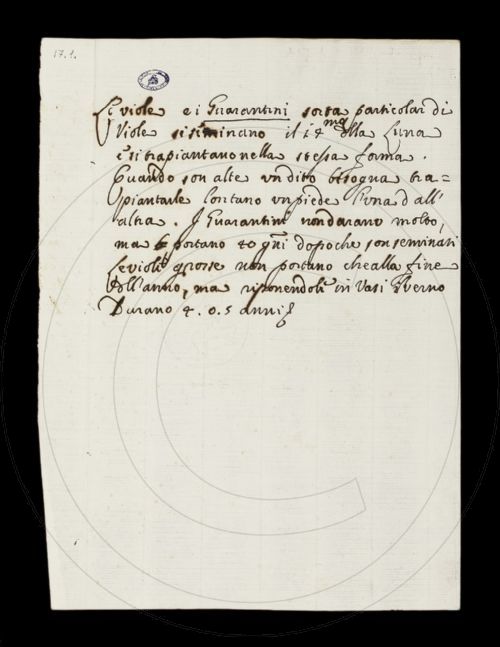 17.1.
Le viole e i Guarantini sorta particolar di
Viole si siminano il 14mo della Luna
e si trapiantano nella stessa forma.
Quando son alte un dito bisogna tra=
piantarle lontano un piede l'una d all'
altra. I Guarantini non darano molto,
ma portano 40 gni dopo che son seminati
Le viole grosse non portano che alla fine
dell'anno, ma riponendole in Vasi
Durano 4. o. 5 anni